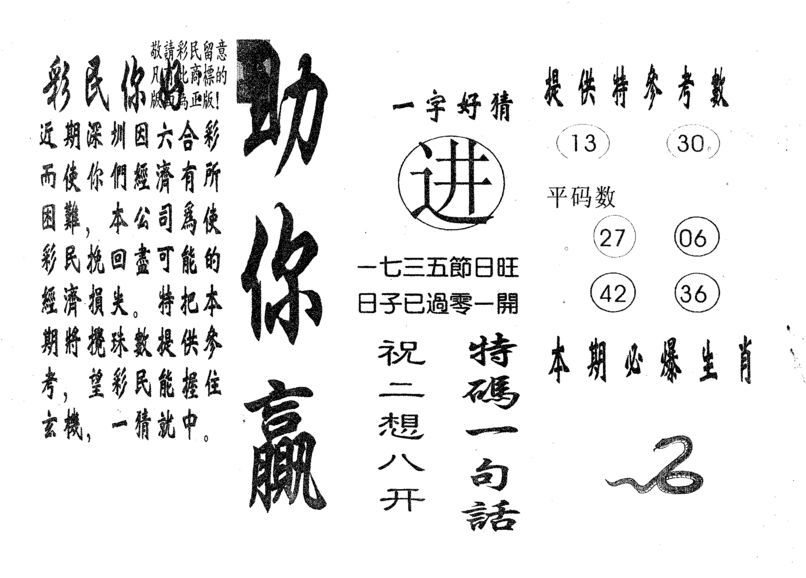 敬請彩民留意
版 為正版!
彩民你好
近期深圳因六合彩
而使你們經濟有所
困難,本公司為使
彩民挽回盡可能的
經濟損失。特把本
期將攪珠數提供參
考,望彩民能握住
玄機,一猜就中。
助你贏
一字好猜
进
一七三五節日旺
日子已過零一開
特碼一句話
祝二想八开
提供特參考數
13 30
平码数
27 06
42 36
本期必爆生肖